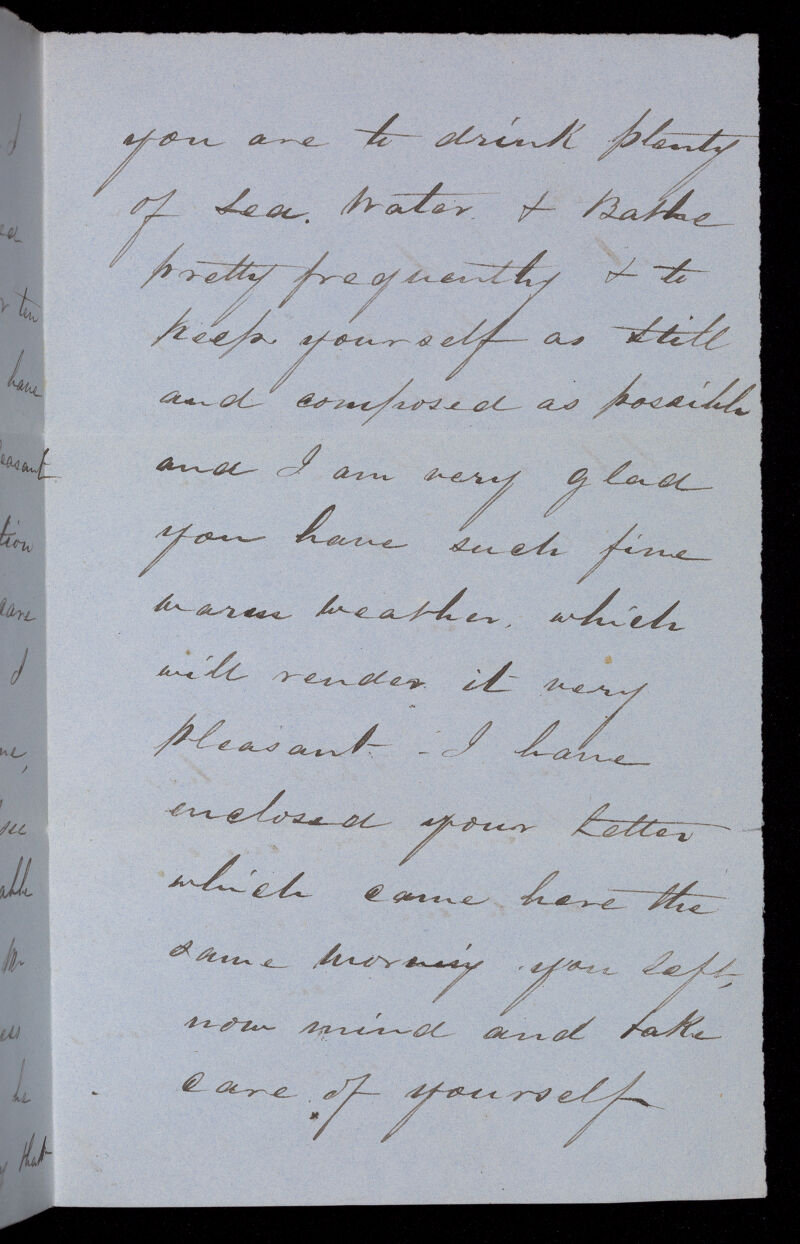 you are to drink plenty
of Sea. Water. & Bathe
pretty frequently & to
keep. yourself as still
and composed as possible
and I am very glad
you have such fine
warm weather. which
will render it very
pleasant - I have
enclosed your Letter
which came here the
same morning you left,
now mind and take
care of yourself
ten
have
easant
tion
that